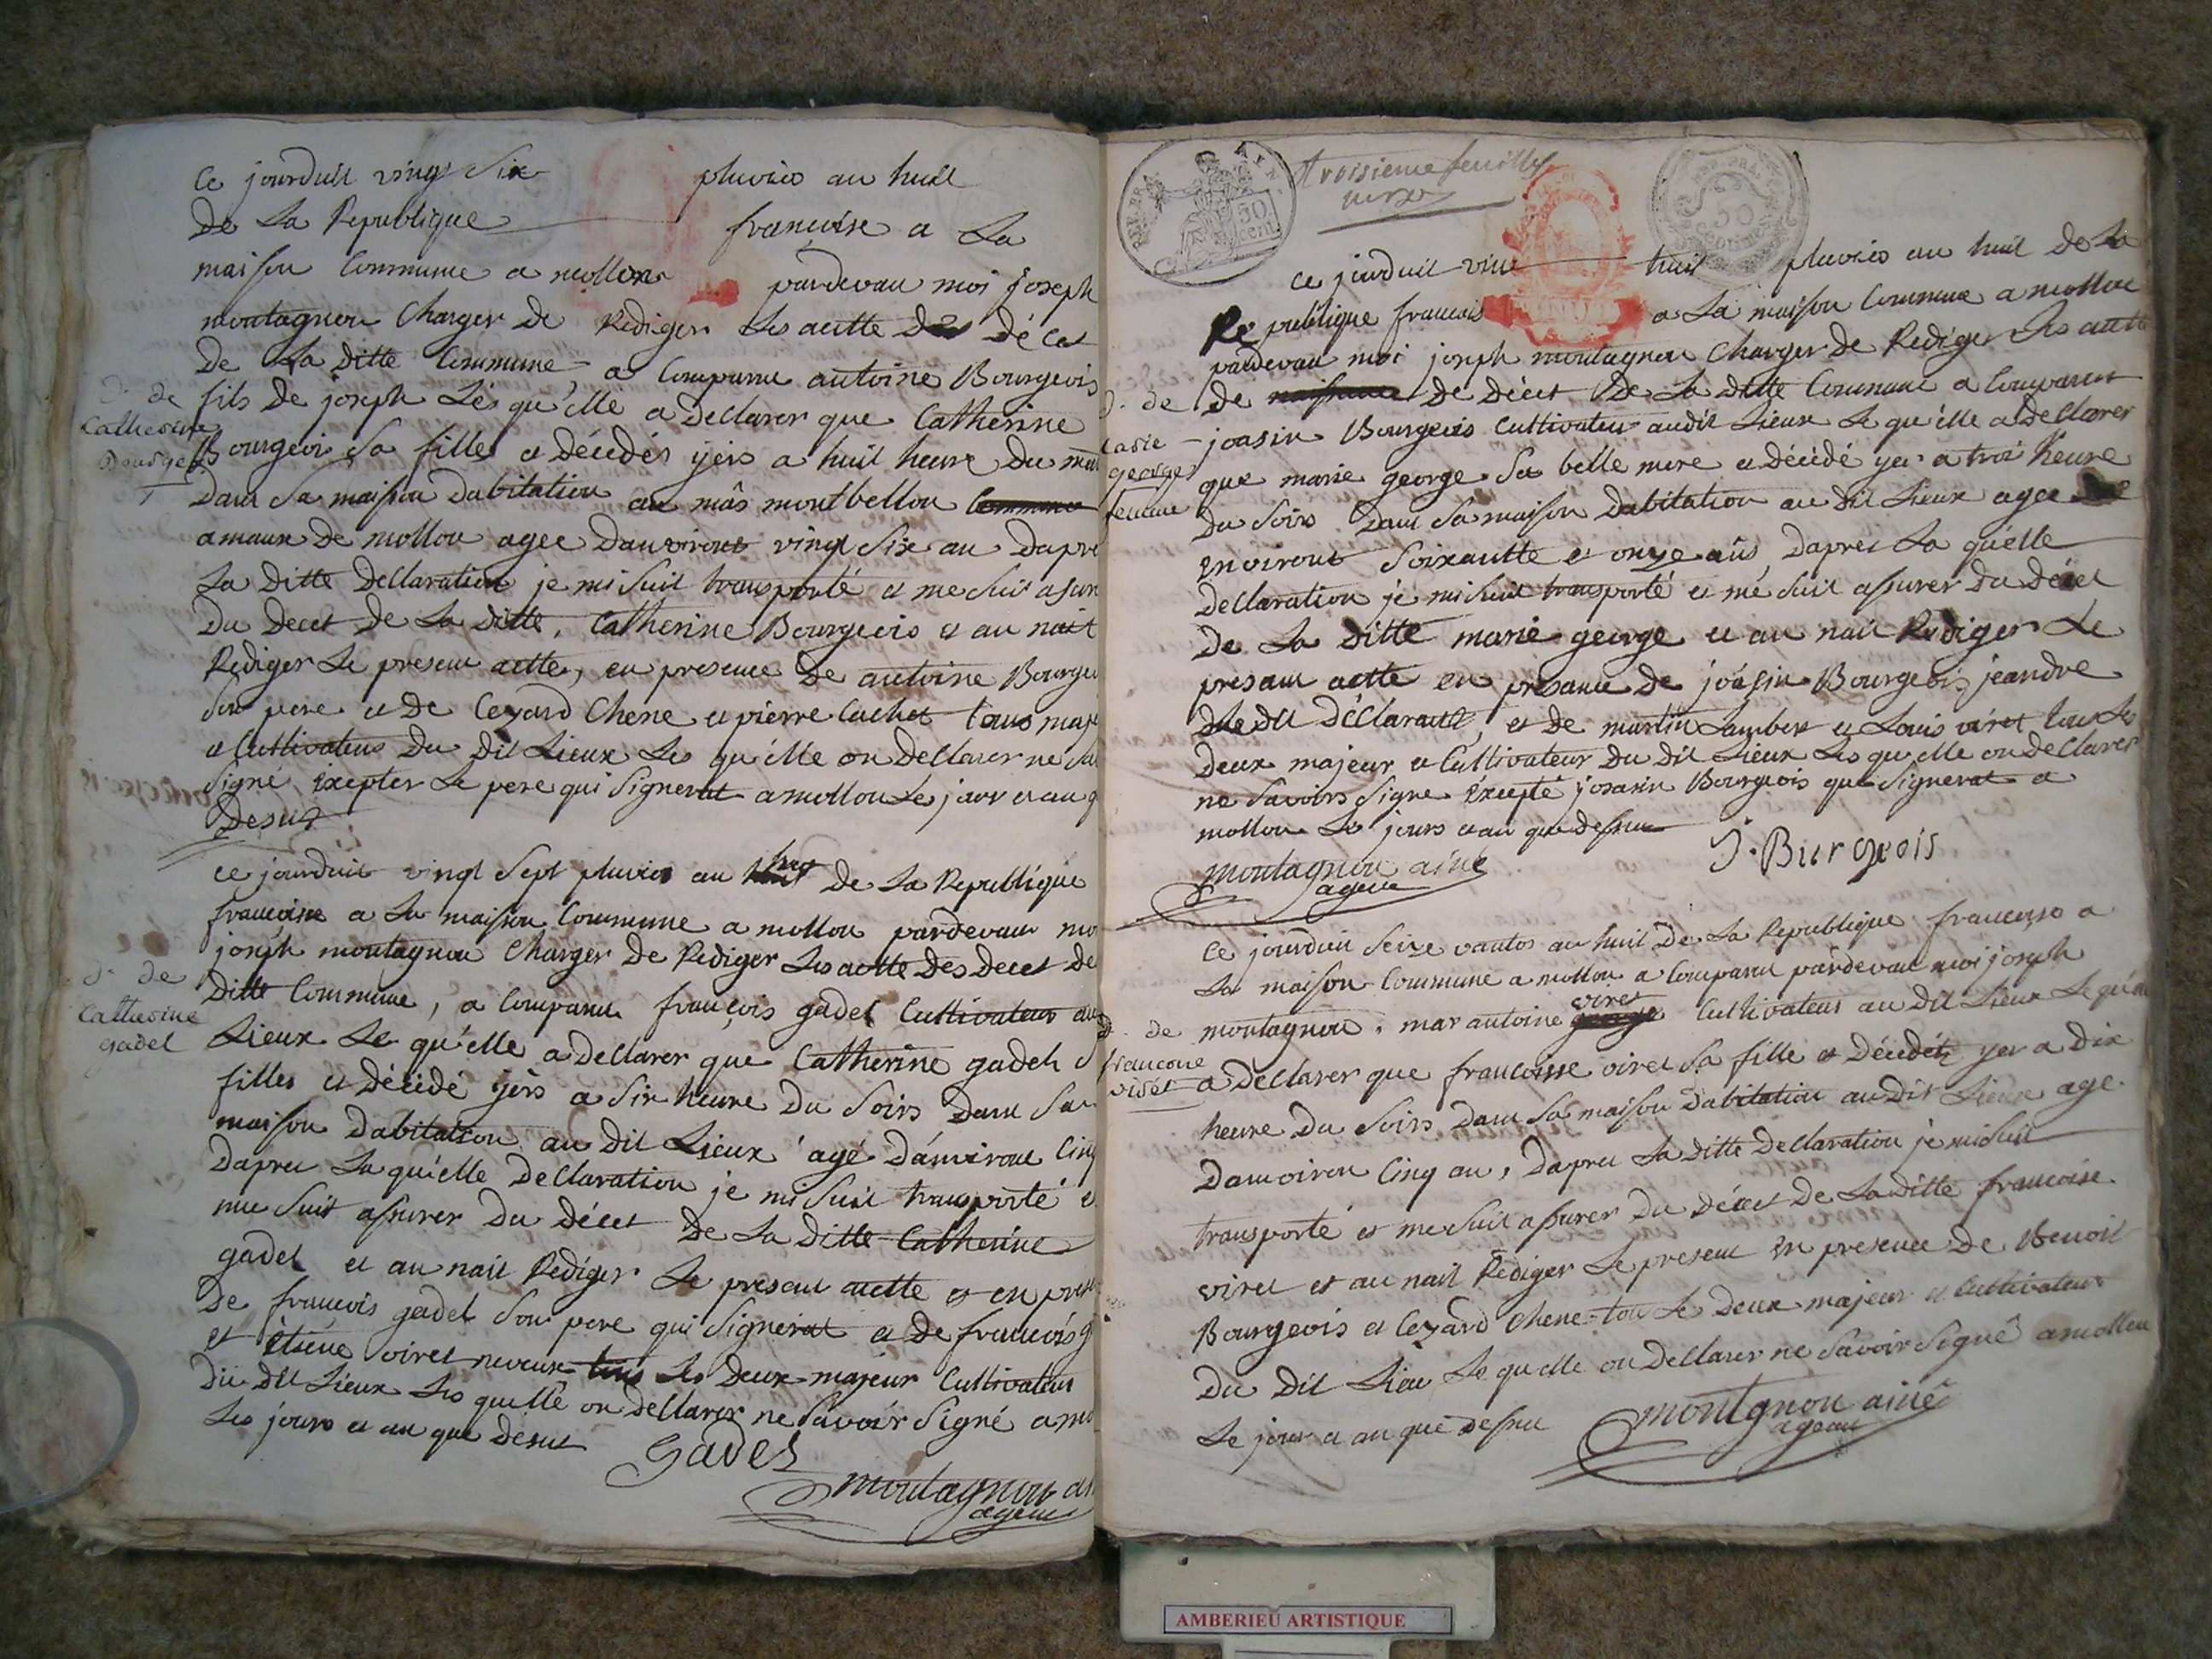 Ce jourduit vingt Six pluvios an huit
De La Republique francoise a La
maison Commune a mollon pardevau moi joseph
montagnon Charger de Rediger Les actte des décet
De La ditte Commune, a Comparu antoine Bourgeois
fils De joseph Les qu'elle a Declarer que Catherine
Bourgeois Sa filles et décédés yers a huil heure Du
Dans Sa maison Dabitation au mâs montbellon
amaux de mollon agee Danviront vingt Six an Dapre
La Ditte Declaration je mi Suit transporté et me Suit asur
Du Decet De La ditte, Catherine Bourgeois et an nait
Rediger Le presens actte, en presence De antoine Bourge
Son pere et de Cezard Chene et pierre Cachet tous maje
et Cuttivateurs Du Dit Lieux Les qu'elle on Declarer ne Sa
Signe, Exepter Le pere qui Signerat a mollon Le jour et an q
Desus
D. de
Catherine
Bourgeo
Ce jourduit vingt Sept pluvios an huit De La Republique
francoise a La maison Commune a mollon pardevau mo
joseph montagnon Charger De Rediger Les actte Des Decet de
ditte Commune, a Comparu françois gadel Cultivateur au
Lieux Le qu'elle a Declarer que Catherine gadel S
filles et Décédé yérs a Six heure Du Soirs Dans Sa
maison Dabitation au Dit Lieux agé D'anviront Cinq
Dapres La qu'elle Declaration je mi Suit transporté e
me Suit assurer Du décet De La ditte Catherine
gadel et an nait Rediger Le presant actte et en pres
De francois gadel Son pere qui Signerat et De francois g
et Etiene viret neveux tous Les Deux majeur Cultivateur
Du Dit Lieux Les quelle on Declarer ne Savoir Signé a mo
Les jours et an que desus
D. de
Catherine
gadel
Gadel
montagnon
agent
troisieme feuille
50
cent
50
Ce jourduit vint huit pluvios an huit De La
Republique francois a La maison Commune a mollon
pardevau moi joseph montagnon Charger de Rediger Les actte
de De Décet De La Ditte Commune a Comparut
joasin Bourgeois Cultivateur audit Lieux Le qu'elle a Declarer
que marie george Sa belle mere et décédé yer a troi heure
Du Soirs Dans Sa maison Dabitation au Dit Lieux agee
environt Soixantte et onze ans, Dapres La quelle
Declaration je mi Suit transporté et mé Suit assurer Du décet
De La Ditte marie george et an nait Rediger Le
presant actte en presance de joasin Bourgeois, jeandre
Du Dit Declarantt, et De martin Lambert et Louis viret tous Les
Deux majeur et Cultivateur Du Dit Lieux Les qu'elle on Declarer
ne Savoirs Signe Excepté josasin Bourgeois que Signerat a
mollon Les jours et an que dessus
D. de
marie
george
femme
J. Burgeois
montagnon ainé
agent
Ce jourduit Seize vantos an huit De La Republique francoise a
La maison Commune a mollon a Comparu pardevau moi joseph
montagnon, mar antoine viret Cultivateur au Dit Lieux Le qu'elle
a Declarer que francoisse viret Sa fille et Décédéz yer a Dix
heure Du Soirs Dans Sa maison Dabitation au Dit Lieux age
Danvoiron Cinq an, Dapres La Ditte Declaration je mi Suit
transporté et me Suit assurer Du Décet De La ditte francoise
viret et an nait Rediger Le present en presence de Benoit
Bourgeois et Cezard Chene tous Les Deux majeur et Cultivateur
Du Dit Lieu Les quelle on Declarer ne Savoir Signé a mollon
Le jour et an que dessus
D. de
francoise
viret
montagnon ainé
agent
AMBERIEU ARTISTIQUE